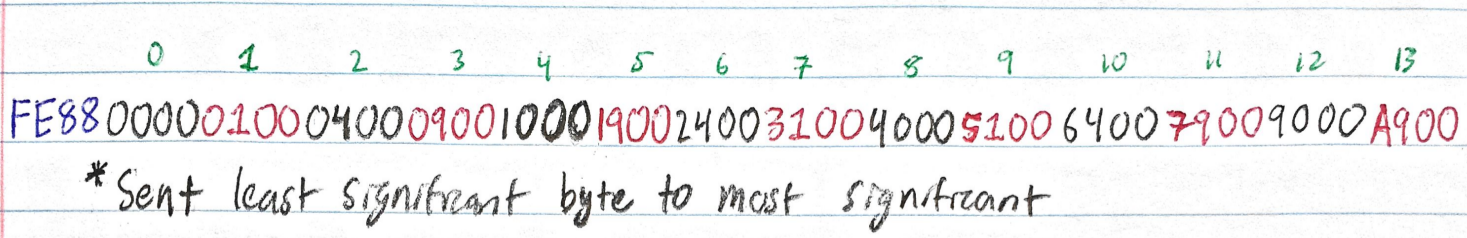 0 1 2 3 4 5 6 7 8 9 10 11 12 13
FE880000010004000900100019002400310040005100640079009000A900
* Sent least significant byte to most significant